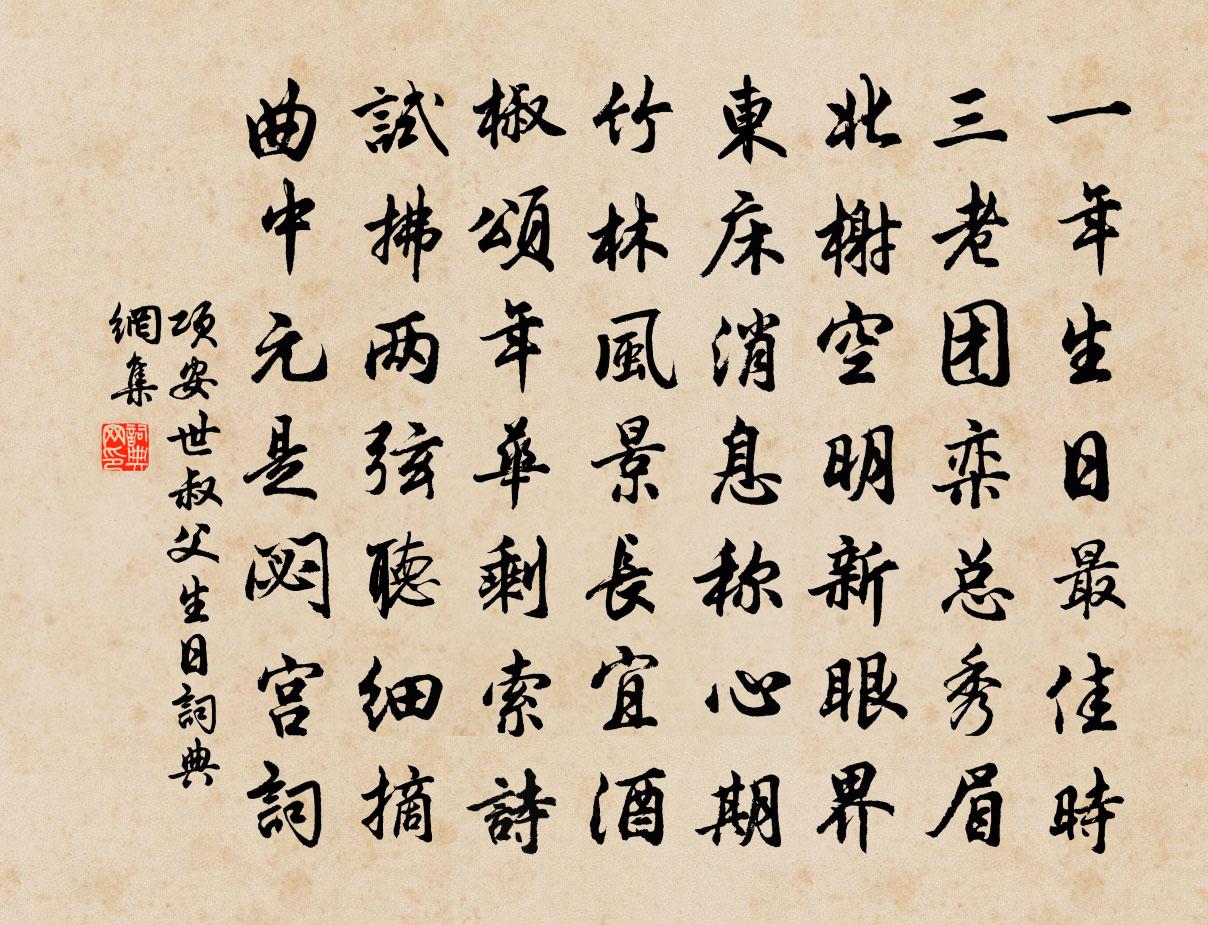 一年生日最佳時
三老团栾总秀眉
北榭空明新眼界
東床消息称心期
竹林風景長宜酒
椒頌年華剩索詩
試拂两弦聽细摘
曲中元是閟宫詞
项安世叔父生日詞典
網集
詞典网印